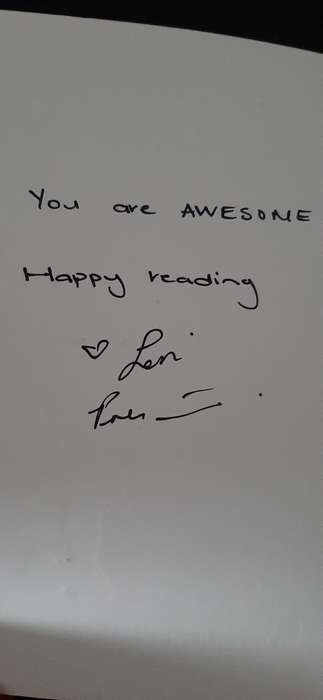 You are AWESOME
Happy reading
♡ Leni